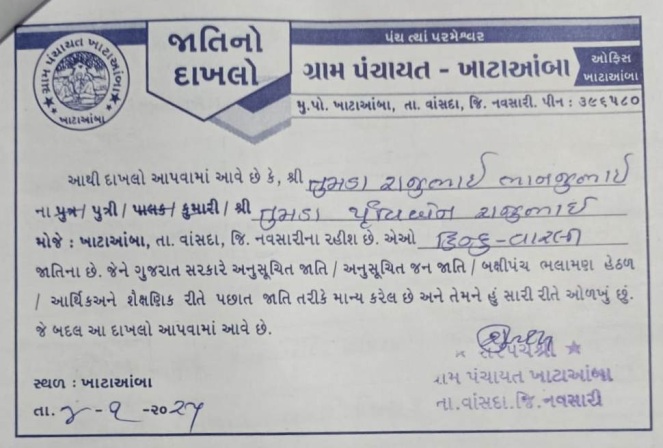 ગ્રામ પંચાયત ખાટાઆંબા
ખાટાઆંબા
જાતિનો
દાખલો
પંચ ત્યાં પરમેશ્વર
ગ્રામ પંચાયત - ખાટાઆંબા
ઓફિસ
ખાટાઆંબા
મુ.પો. ખાટાઆંબા, તા. વાંસદા, જિ. નવસારી. પીન : ૩૯૬૫૮૦
આથી દાખલો આપવામાં આવે છે કે, શ્રી તુમડા રાજુભાઈ ભાનજીભાઈ
ના પુત્ર / પુત્રી / પાલક / કુમારી / શ્રી તુમડા રાજુભાઈ
મોજે : ખાટાઆંબા, તા. વાંસદા, જિ. નવસારીના રહીશ છે. એઓ હિન્દુ-વારલી
જાતિના છે. જેને ગુજરાત સરકારે અનુસૂચિત જાતિ / અનુસૂચિત જન જાતિ / બક્ષીપંચ ભલામણ હેઠળ
/ આર્થિકઅને શૈક્ષણિક રીતે પછાત જાતિ તરીકે માન્ય કરેલ છે અને તેમને હું સારી રીતે ઓળખું છું.
જે બદલ આ દાખલો આપવામાં આવે છે.
સરપંચશ્રી
સ્થળ : ખાટાઆંબા
ગ્રામ પંચાયત ખાટાઆંબા
તા. -૨૦૨૫
તા.વાંસદા.જિ.નવસારી